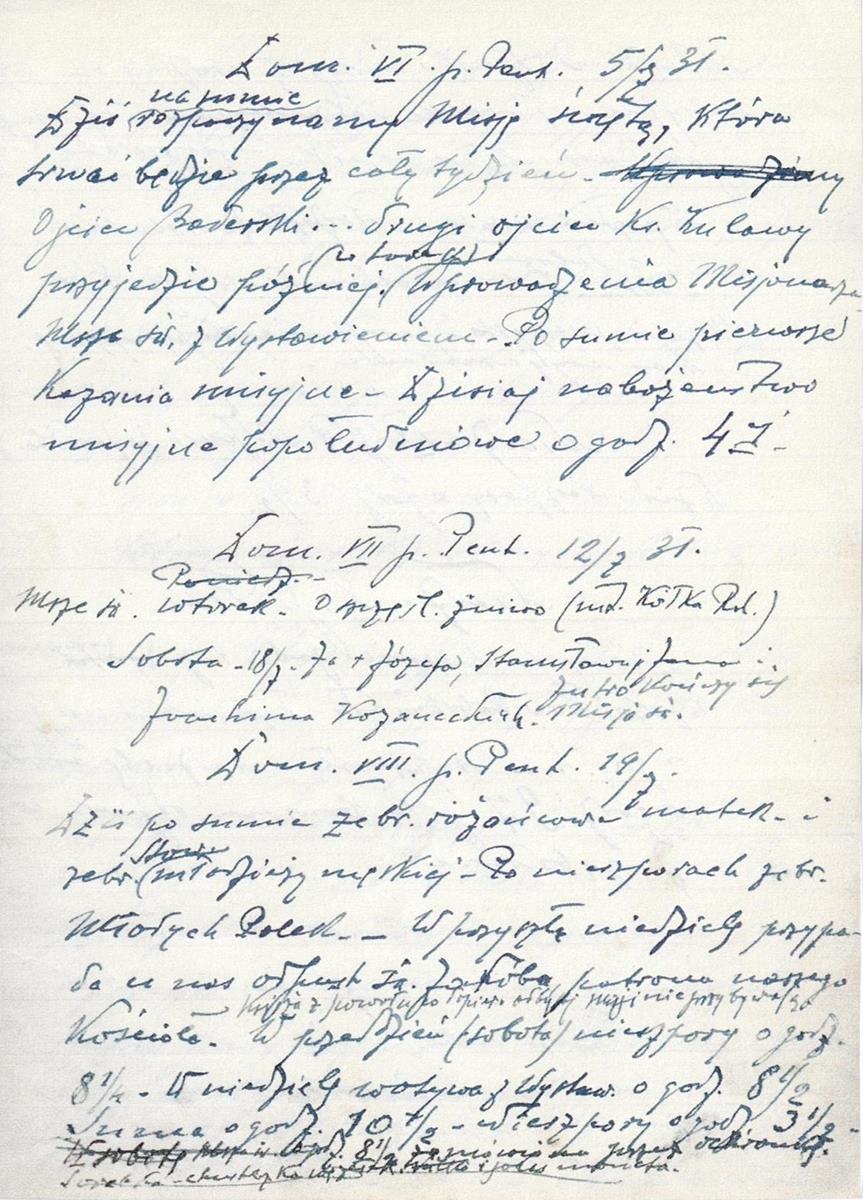 Dom. VI p. Pent. 5/7 31.
na sumie
Dziś rozpoczynamy Misję świętą, która
trwać będzie przez cały tydzień - Wprowadzimy
Ojciec Baderski... drugi ojciec Ks. Kulawy
przyjedzie później. Wprowadzenia Misjonarza
Msza św. z Wystawieniem - Po sumie pierwsze
Kazania misyjne - Dzisiaj nabożeństwo
misyjne popołudniowe o godz. 4 -
Dom. VII p. Pent. 12/7 31.
Poniedz. -
Msze św. wtorek - O szczęśl. żniwo (int. Kółka Rol.)
Sobota - 18/7. Za + Józefa, Stanisława, Jana i
Jutro kończy się
Joachima Kozaneckich. Misja św.
Dom. VIII p. Pent. 19/7.
Dziś po sumie zebr. różańcowe matek - i
Stow.
zebr. młodzieży męskiej - Po nieszporach zebr.
Młodych Polek - W przyszłą niedzielę przypa-
da u nas odpust św. Jakóba patrona naszego
Księża z powodu dopiero odbytej misji nie przybywają
Kościoła - W przeddzień (sobota) nieszpory o godz.
8 1/4 - W niedzielę wotywa z Wystaw. o godz. 8 1/2
Suma o godz. 10 1/2 - Nieszpory o godz. 3 1/2 -
W sobotę Msza św. o godz. 8 1/2 zamówiona przez ochronkę.